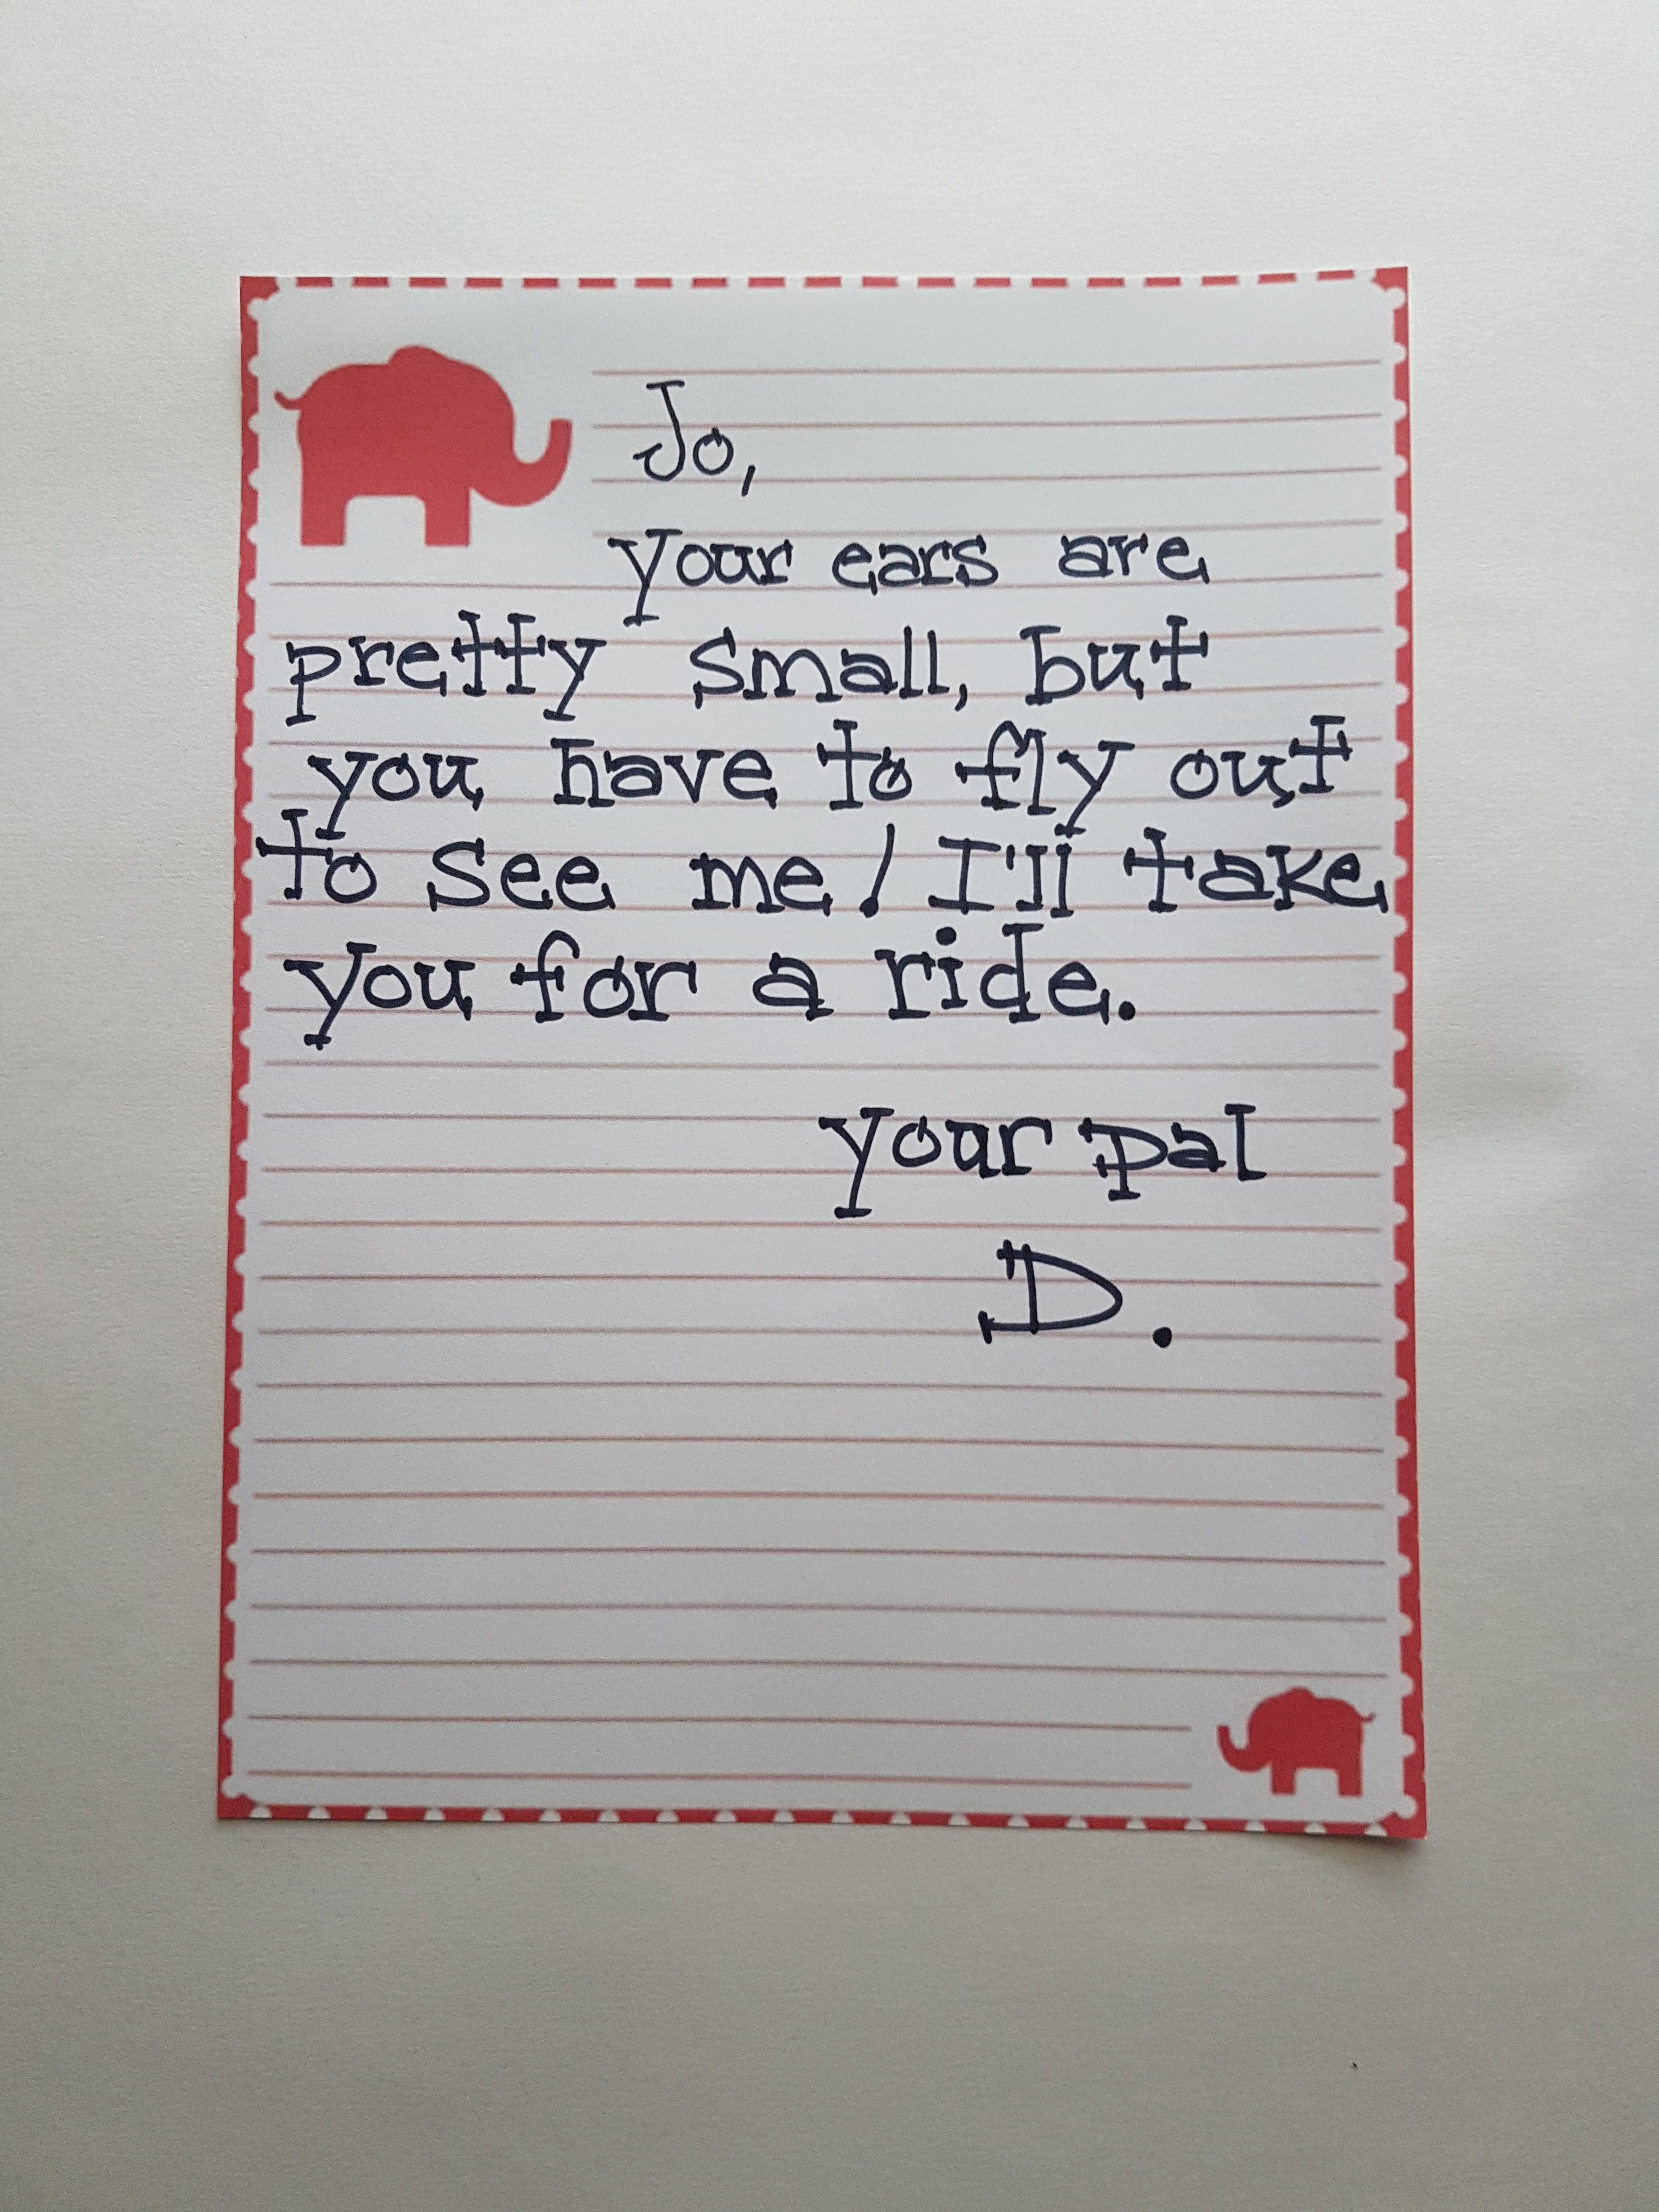 Jo,
Your ears are
pretty small, but
you have to fly out
to see me! I'll take
you for a ride.
Your pal
D.